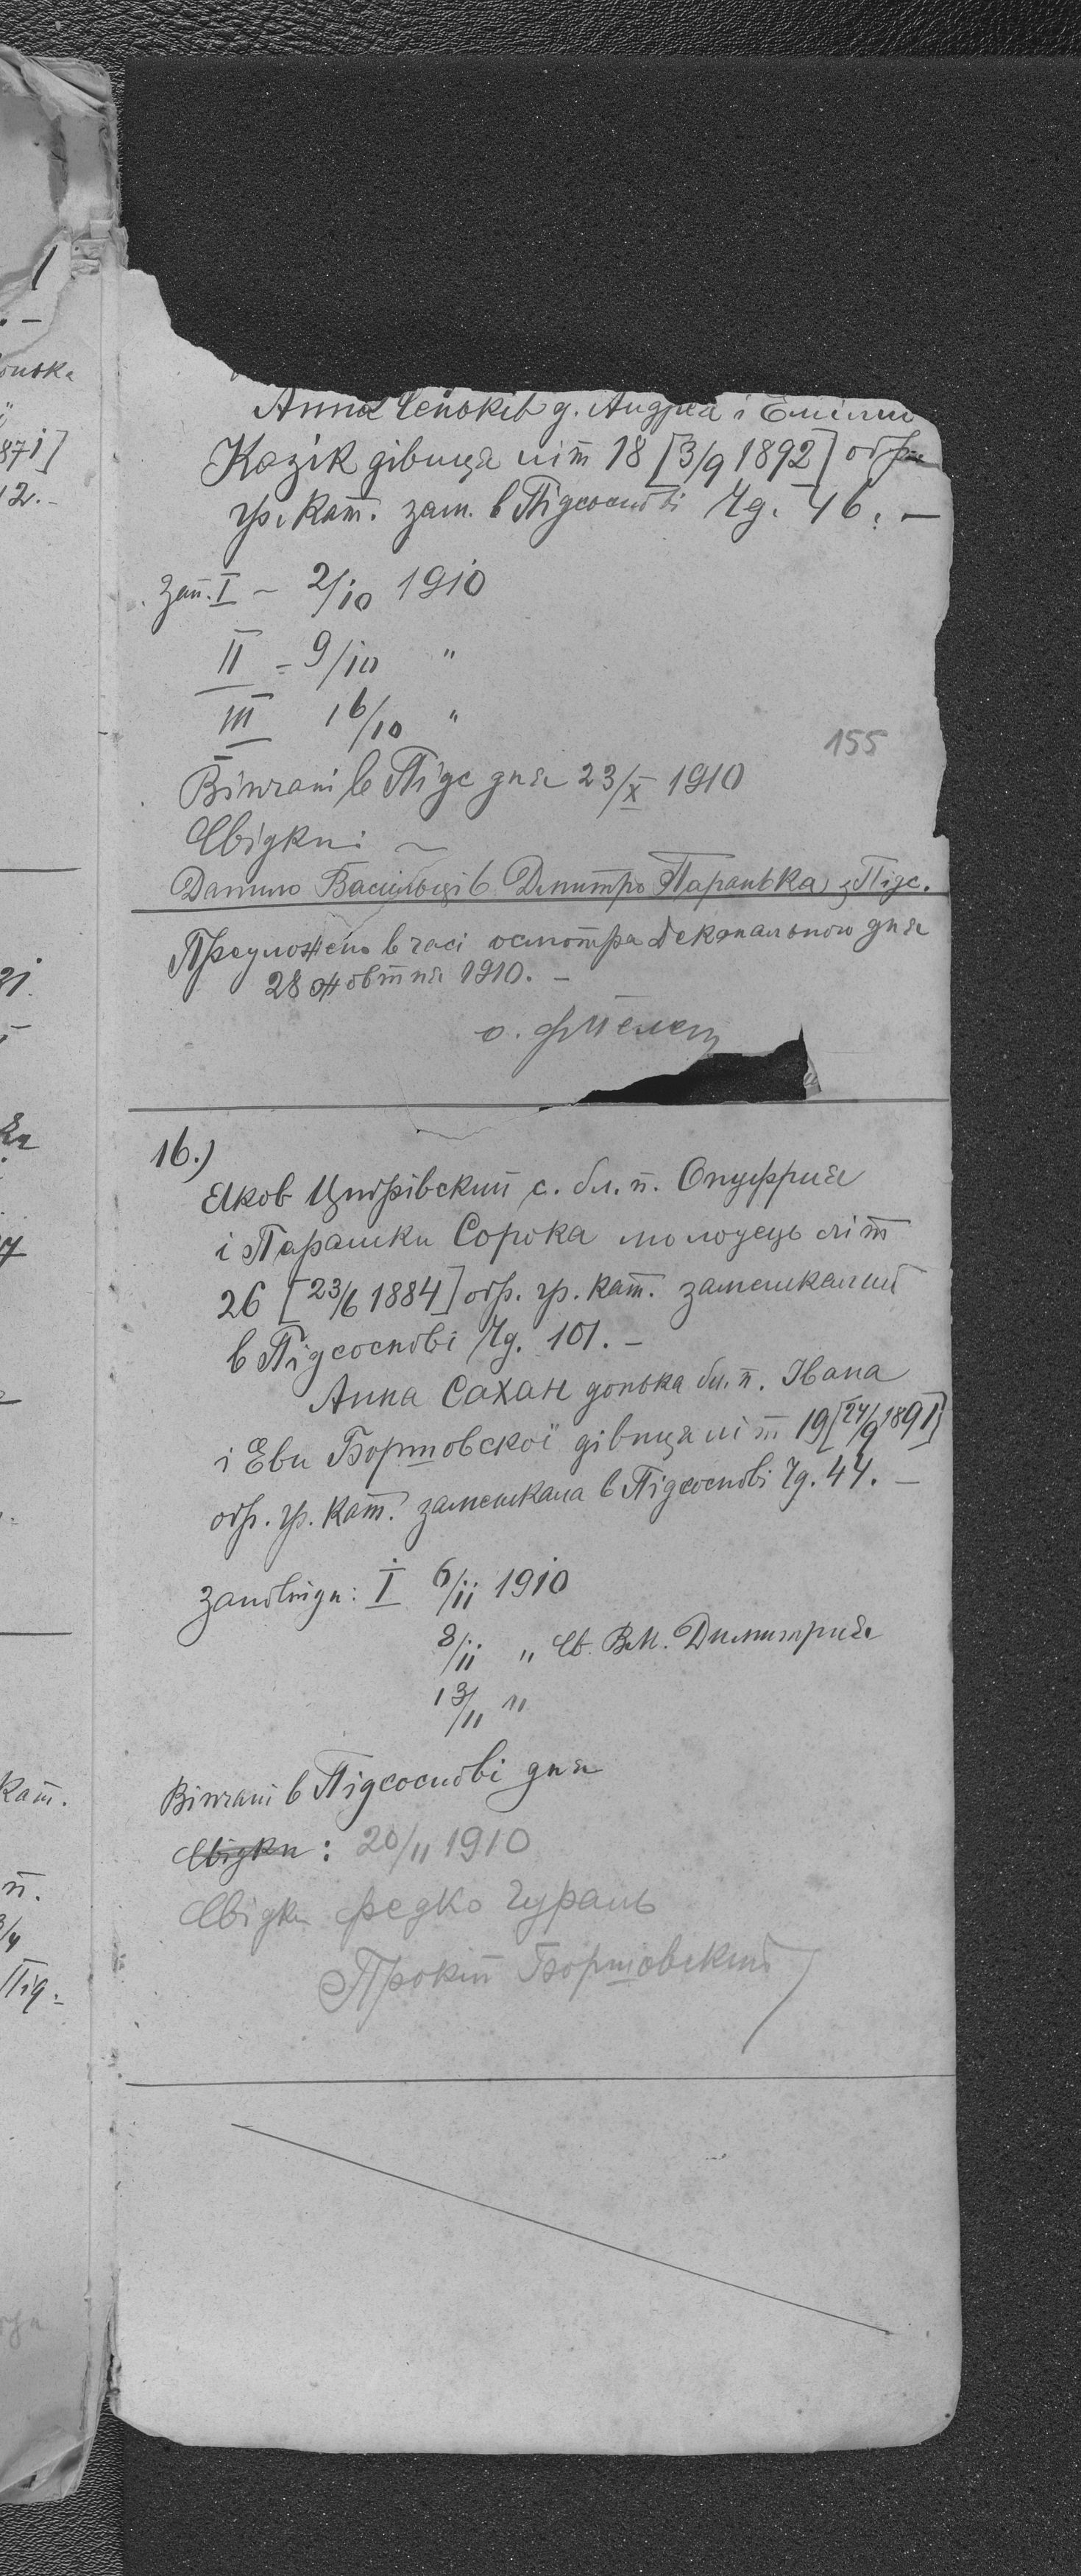 Анна Сеньків д. Андрея і Емілии
Козік дівиця літ 18 [3/9 1892] обр.
гр. кат. зам. в Підсоснові Чд. 46. —
Зап. I — 2/10 1910
II = 9/10 "
III 16/10 "
155
Вінчані в Підс дня 23/X 1910
Свідки: ~
Данило Васильців Дмитро Паранька з Підс.
Предложено в часі осмотра деканального дня
28 жовтня 1910. —
о.
16.)
Яков Цмпрівский с. бл. п. Онуфрия
і Парашки Сорока молодець літ
26 [23/6 1884] обр. гр. кат. замешкалий
в Підсоснові Чд. 101. —
Анна Сахан донька бл. п. Івана
і Еви Боршовскої дівиця літ 19 [24/9 1891]
обр. гр. кат. замешкала в Підсоснові Чд. 44. —
Заповіди: I 6/11 1910
8/11 " Св. ВМ. Димитрия
13/11 "
Вінчані в Підсоснові дня
Свідки : 20/11 1910
Свідки Федко Чураль
Прокіп Боршовский
Кат.
п.
Під.